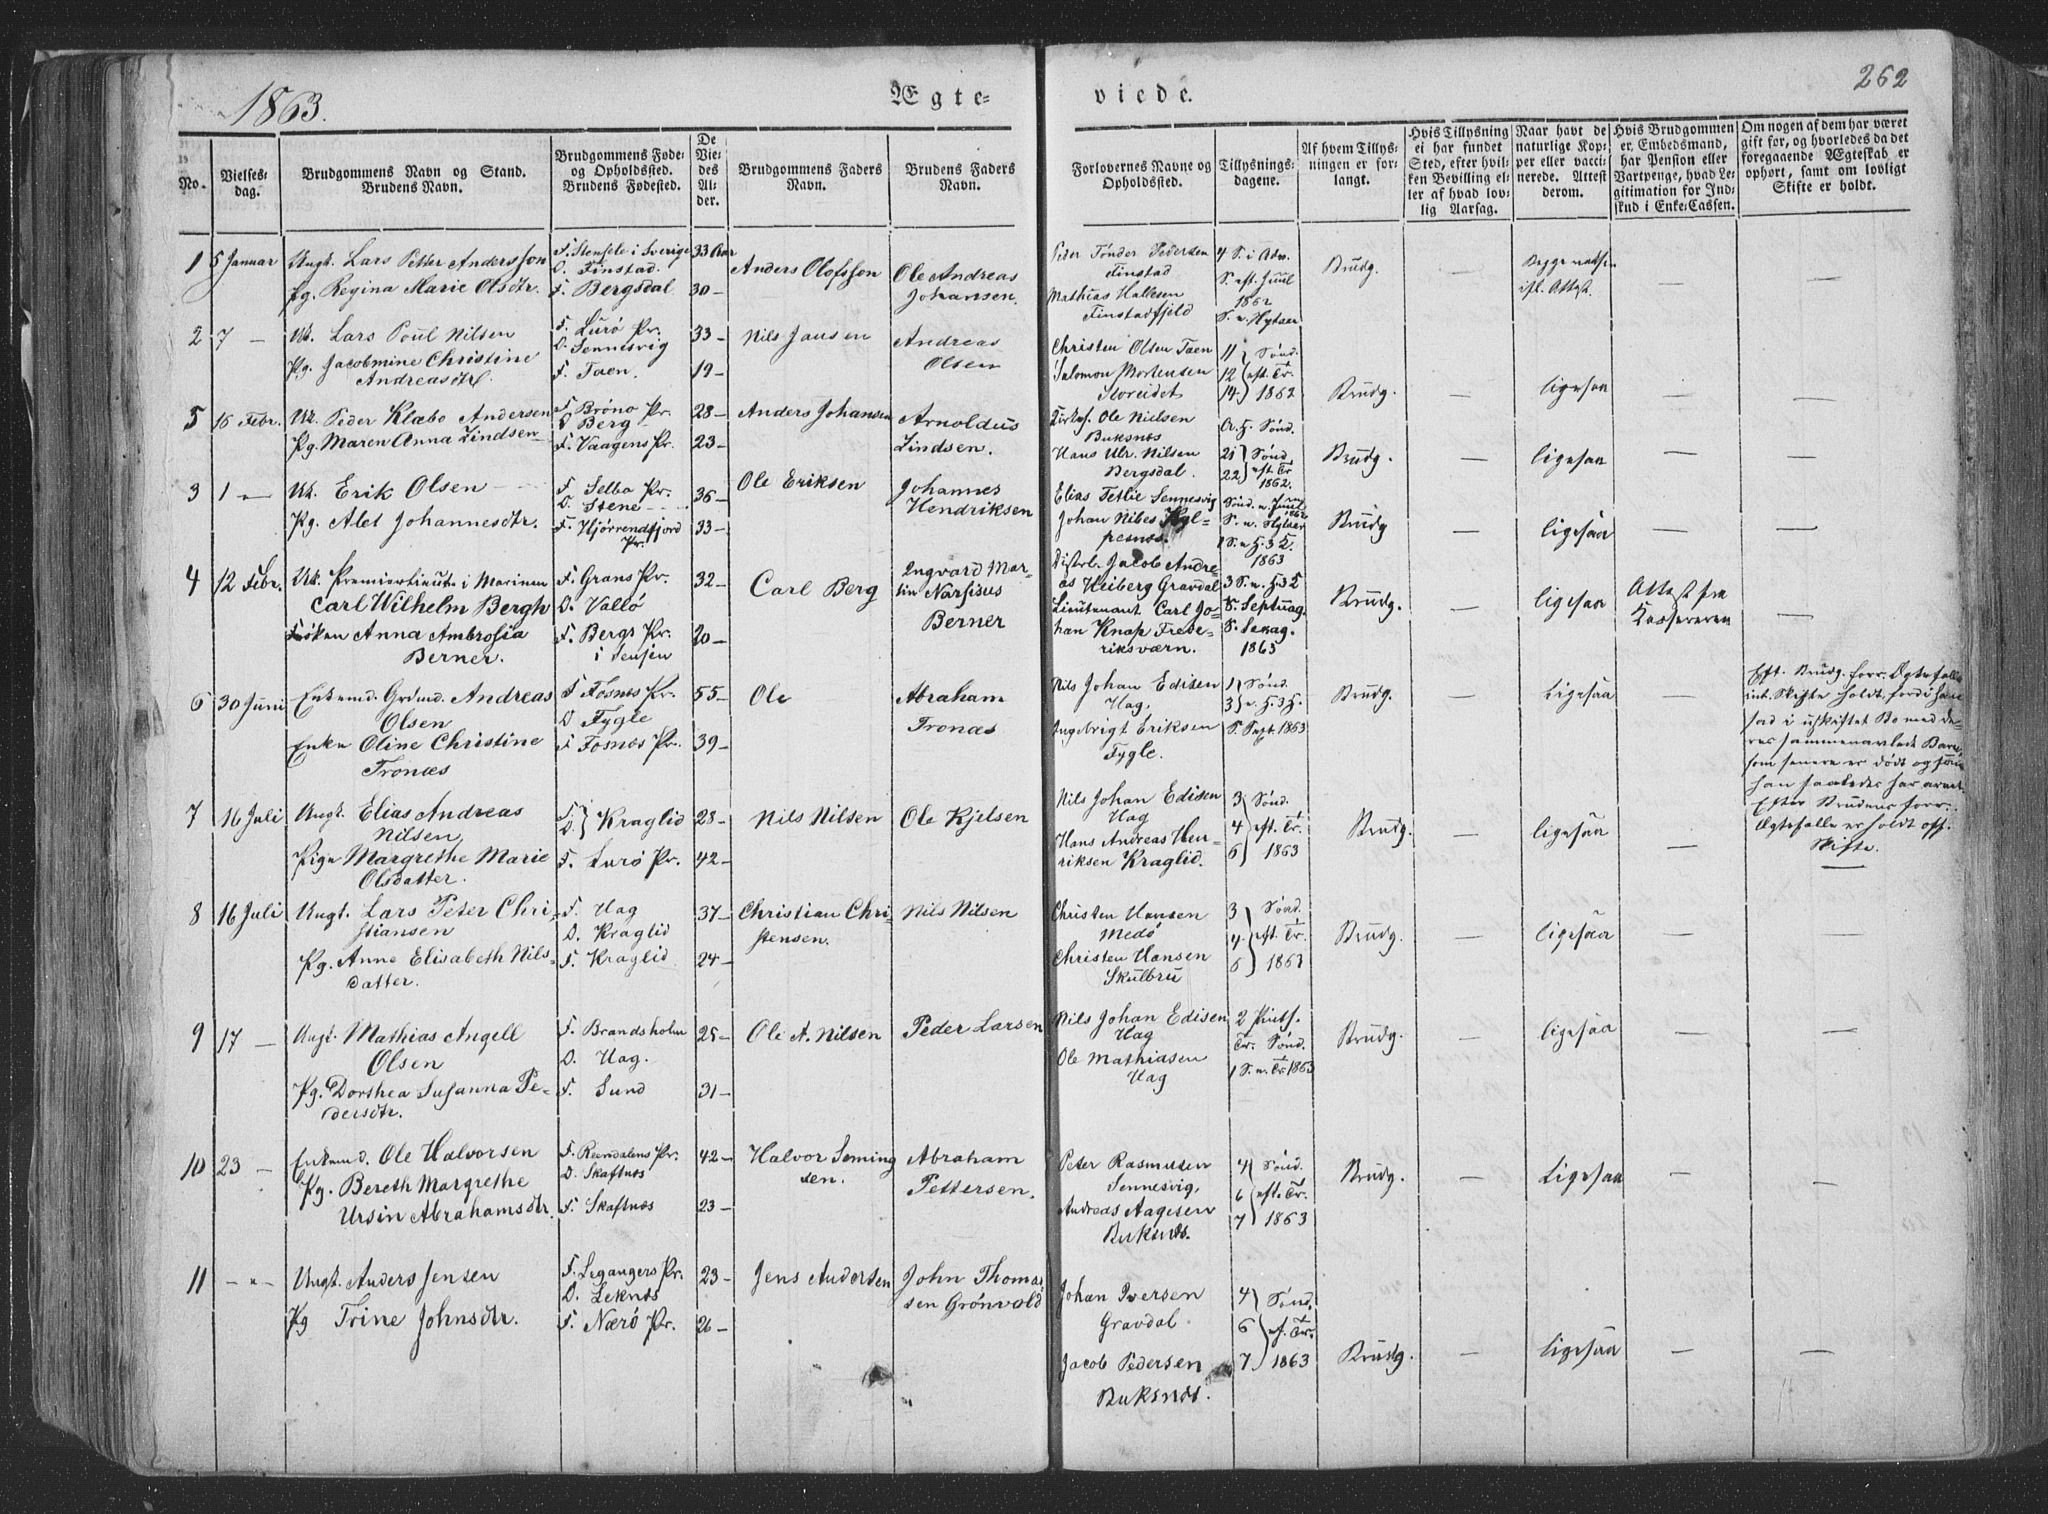 1863.
Ægte-
viede.
262
No.
Vielses-
dag.
Brudgommens Navn og Stand.
Brudens Navn.
Brudgommens Føde-
og Opholdssted.
Brudens Fødested.
De
Vie-
des
Al-
der.
Brudgommens Faders
Navn.
Brudens Faders
Navn.
Forlovernes Navne og
Opholdssted.
Tillysnings-
dagene.
Af hvem Tillys-
ningen er for-
langt.
Hvis Tillysning
ei har fundet
Sted, efter hvil-
ken Bevilling el-
ler af hvad lov-
lig Aarsag.
Naar havt de
naturlige Kop-
per eller vacci-
nerede. Attest
derom.
Hvis Brudgommen
er Embedsmand,
har Pension eller
Vartpenge, hvad Le-
gitimation for Ind-
skud i Enke-Cassen.
Om nogen af dem har været
gift for, og hvorledes da det
foregaaende Ægteskab er
ophørt, samt om lovligt
Skifte er holdt.
1 5 Januar
Ungk. Lars Petter Andersson
Pg. Regina Marie Olsdtr.
F. Stensele i Sverige
O. Finstad.
F. Bergsdal
33 Aar
30 —
Anders Olofsson
Ole Andreas
Johansen.
Peder Tønder Pedersen
Finstad
Mathias Hallesen
Finstadfjeld
4 S. i Adv.
S. eft. Juul
1862
S. n. Nytaar
Brudg.
—
Begge vakse.
ifl. Attest.
—
—
2 7 —
Uk. Lars Poul Nilsen
Pg. Jacobmine Christine
Andreasdtr.
F. Lurø Pr.
O. Sennesvig
F. Taen.
33 —
19 —
Nils Jansen
Andreas
Olsen
Christen Olsen Taen
Salomon Mortensen
Storeidet
11
12
14
Sønd.
eft. Tr.
1862
Brudg.
—
ligesaa
—
—
5 15 Febr.
Uk. Peder Klabo Andersen
Pg. Maren Anna Zindsen
F. Brönø Pr.
O Berg
F. Vaagens Pr.
28 —
23 —
Anders Johansen
Arnoldus
Zindsen.
Ole Nielsen
Buksnes
Hans Ulr. Nilsen
Bergsdal.
A. H. Sønd.
21
22
Sønd.
eft. Tr
1862.
Brudg.
—
ligesaa
—
—
3 1 "
Uk. Erik Olsen
Pg. Alet Johannesdtr.
F. Selbo Pr.
O. Stene
F. Hjörrendfjord
Pr.
36 —
33 —
Ole Eriksen
Johannes
Hendriksen
Elias Tetlie Sennesvig
Johan Nibes
pesnes.
Sønd. n. Juul
1862
S. n. Nytaar
1 S. n. H. 3 K.
1863
Brudg
—
ligesaa
—
—
4 12 Febr.
Uk. Premierlieut. i Marinen
Carl Wilhelm Bergh
Frøken Anna Ambrosia
Berner.
F. Grans Pr.
O. Vallö
F. Bergs Pr.
i Senjen
32 —
20 —
Carl Berg
Ingvard Mar-
tin Narsisus
Berner
Distrl. Jacob Andre-
as Heiberg Gravdal
Lieutenant Carl Jo-
han Knap Frede-
riksværn.
3 S. n. H. 3 K
S. Septuag.
S. Sexag.
1863
Brudg.
—
ligesaa
Attest fra
Kassereren
—
6 30 Juni
Enkemd. Grdmd. Andreas
Olsen
Enke Oline Christine
Tronæs
F Fosnes Pr.
O Fygle
F Fosnæs Pr.
55 —
39 —
Ole
Abraham
Tronæs
Nils Johan Edisen
Hag,
Ingebrigt Eriksen
Fygle.
1
3
Sønd.
n. H. 3 K.
S. Sept. 1863
Brudg.
—
ligesaa
—
Eft. Brudg. forr. Ægtefælle
int. Skifte holdt, fordi han
sad i uskiftet Bo med de-
res sammenavlede Barn,
som senere er dødt og som
han saaledes har arvet.
Efter Brudens forr.
Ægtefælle er holdt off.
Skifte.
7 16 Juli
Ungk. Elias Andreas
Nilsen
Pige Margrethe Marie
Olsdatter.
F.
O.
Kraglid
F. Lurö Pr.
28 —
42 —
Nils Nilsen
Ole Kjelsen
Nils Johan Edisen
Hag
Hans Andreas Hen-
riksen Kraglid.
3
4
6
Sønd.
eft. Tr.
1863
Brudg.
—
ligesaa
—
—
8 16 Juli
Ungk. Lars Peter Chri-
stiansen
Pg. Anne Elisabeth Nils-
datter.
F. Hag
O. Kraglid
F. Kraglid
37 —
24 —
Christian Chri-
stensen.
Nils Nilsen
Christen Hansen
Medö
Christen Hansen
Skulbru
3
4.
6
Sønd.
eft. Tr.
1863
Brudg.
—
ligesaa
—
—
9 17 —
Ungk. Mathias Angell
Olsen
Pg. Dorthea Susanna Pe-
dersdtr.
F. Brandsholm
O. Hag.
F. Sund
25 —
31 —
Ole A. Nilsen
Peder Larsen
Nils Johan Edisen
Hag
Ole Mathiasen
Hag
2 Pints.
Tr. Sønd.
1 S. n. Tr. 1863
Brudg.
—
ligesaa
—
—
10 23 —
Enkemd. Ole Halvorsen
Pg. Bereth Margrethe
Ursin Abrahamsdtr.
F. Reendalens Pr.
O. Skaftnæs
F. Skaftnæs
42 —
23 —
Halvor Seming-
sen.
Abraham
Pettersen.
Peter Rasmusen
Sennesvig,
Andreas Aagesen
Buksnes.
4
6
7
Sønd.
eft. Tr.
1863
Brudg.
—
ligesaa
—
—
11 — " —
Ungk. Anders Jensen
Pg Trine Johnsdtr.
F. Leganger Pr.
O. Leknes
F. Nærö Pr.
23 —
26 —
Jens Andersen
John Thoma-
sen Grönvold
Johan Iversen
Gravdal
Jacob Pedersen
Buksnes.
4
6
7
Sønd.
ef. Tr.
1863
Brudg.
—
ligesaa
—
—